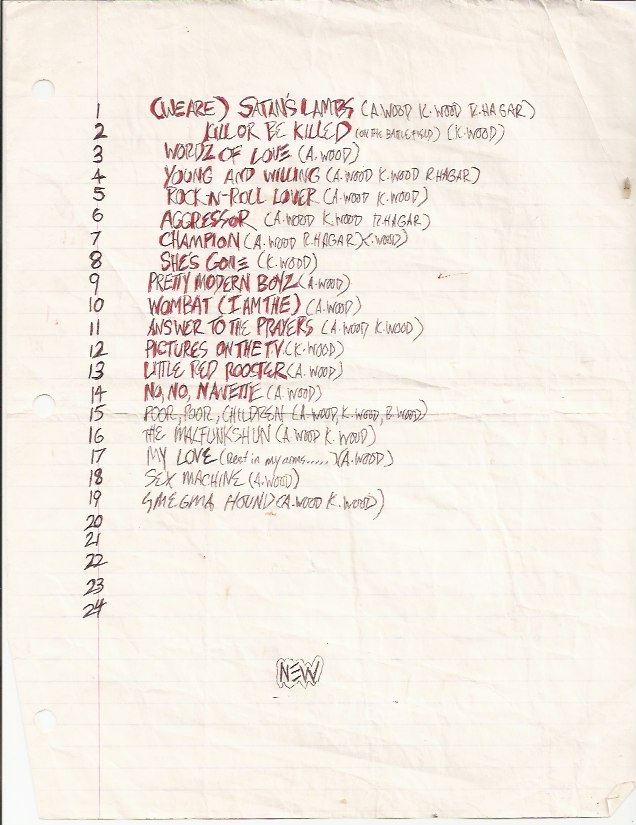 1 (WE ARE) SATAN'S LAMBS (A.WOOD K.WOOD R.HAGAR)
2 KILL OR BE KILLED (ON THE BATTLEFIELD) (K.WOOD)
3 WORDZ OF LOVE (A.WOOD)
4 YOUNG AND WILLING (A.WOOD K.WOOD R.HAGAR)
5 ROCK-N-ROLL LOVER (A.WOOD K.WOOD)
6 AGGRESSOR (A.WOOD K.WOOD R.HAGAR)
7 CHAMPION (A.WOOD R.HAGAR K.WOOD)
8 SHE'S GONE (K.WOOD)
9 PRETTY MODERN BOYZ (A.WOOD)
10 WOMBAT (I AM THE) (A.WOOD)
11 ANSWER TO THE PRAYERS (A.WOOD K.WOOD)
12 PICTURES ON THE TV (K.WOOD)
13 LITTLE RED ROOSTER (A.WOOD)
14 NO, NO, NANETTE (A.WOOD)
15 POOR, POOR, CHILDREN (A.WOOD, K.WOOD, B.WOOD)
16 THE MALFUNKSHUN (A.WOOD K.WOOD)
17 MY LOVE (Rest in my arms.....) (A.WOOD)
18 SEX MACHINE (A.WOOD)
19 SMEGMA HOUND (A.WOOD K.WOOD)
20
21
22
23
24
NEW